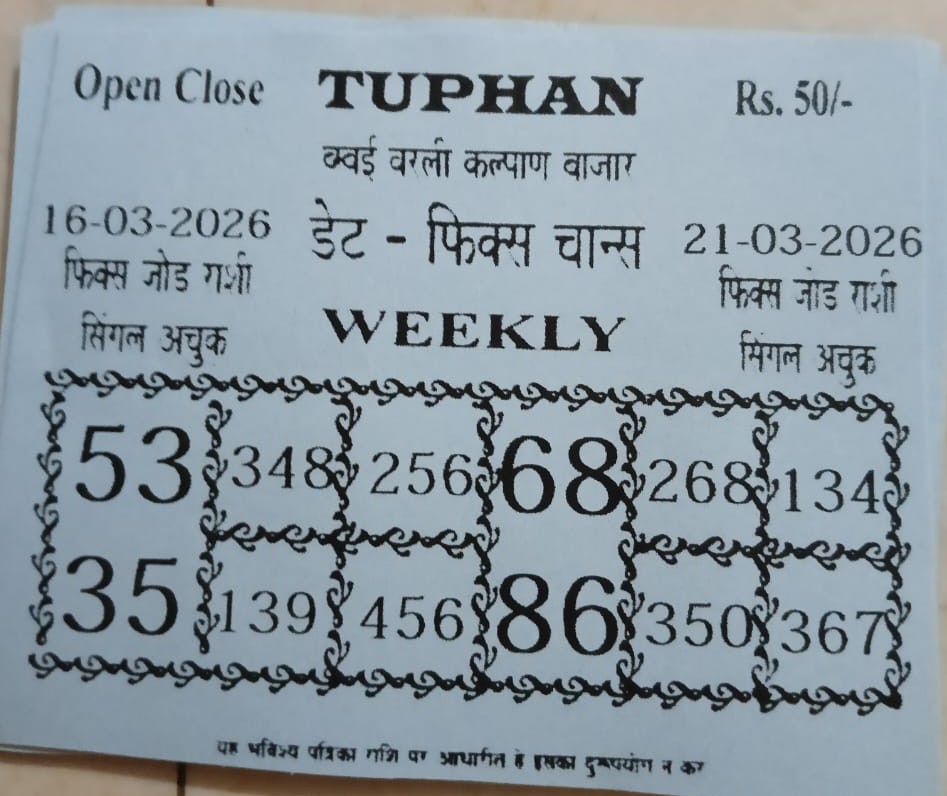 Open Close TUPHAN Rs. 50/-
बम्बई वरली कल्याण वाजार
16-03-2026 डेट - फिक्स चान्स 21-03-2026
फिक्स जोड राशी फिक्स जोड राशी
सिंगल अचुक WEEKLY सिंगल अचुक
53 348 256 68 268 134
35 139 456 86 350 367
यह भविश्य पत्रिका राशि पर आधारित है इसका दुरूपयोग न करे